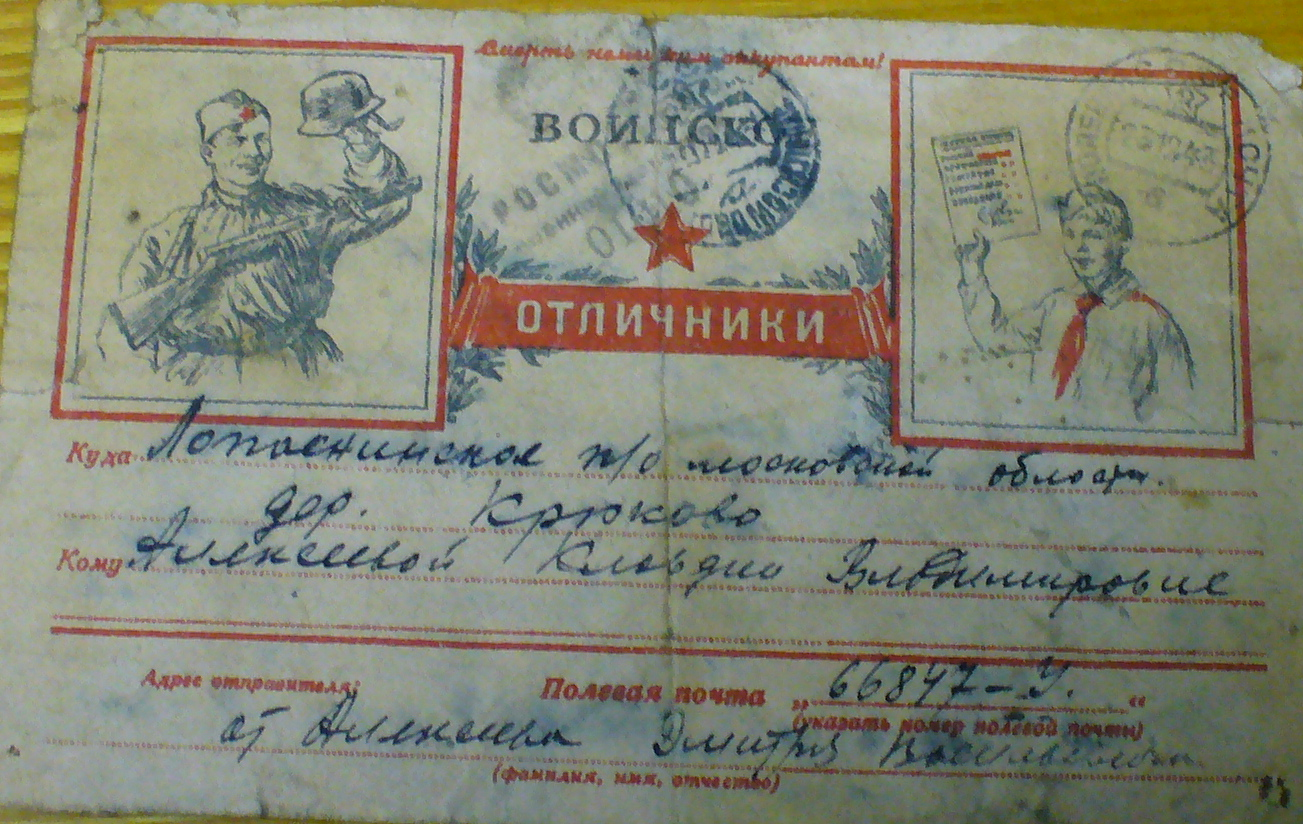 Смерть немецким оккупантам!
ВОИНСКО
ОТЛИЧНИКИ
Куда Лопаснинское п/о московской области.
дер. Крюково
Кому Алексеевой Клавдии Владимировне
Адрес отправителя:
Полевая почта „66847-У.“
(указать номер полевой почты)
от Алексеева Дмитрия Васильевича
(фамилия, имя, отчество)